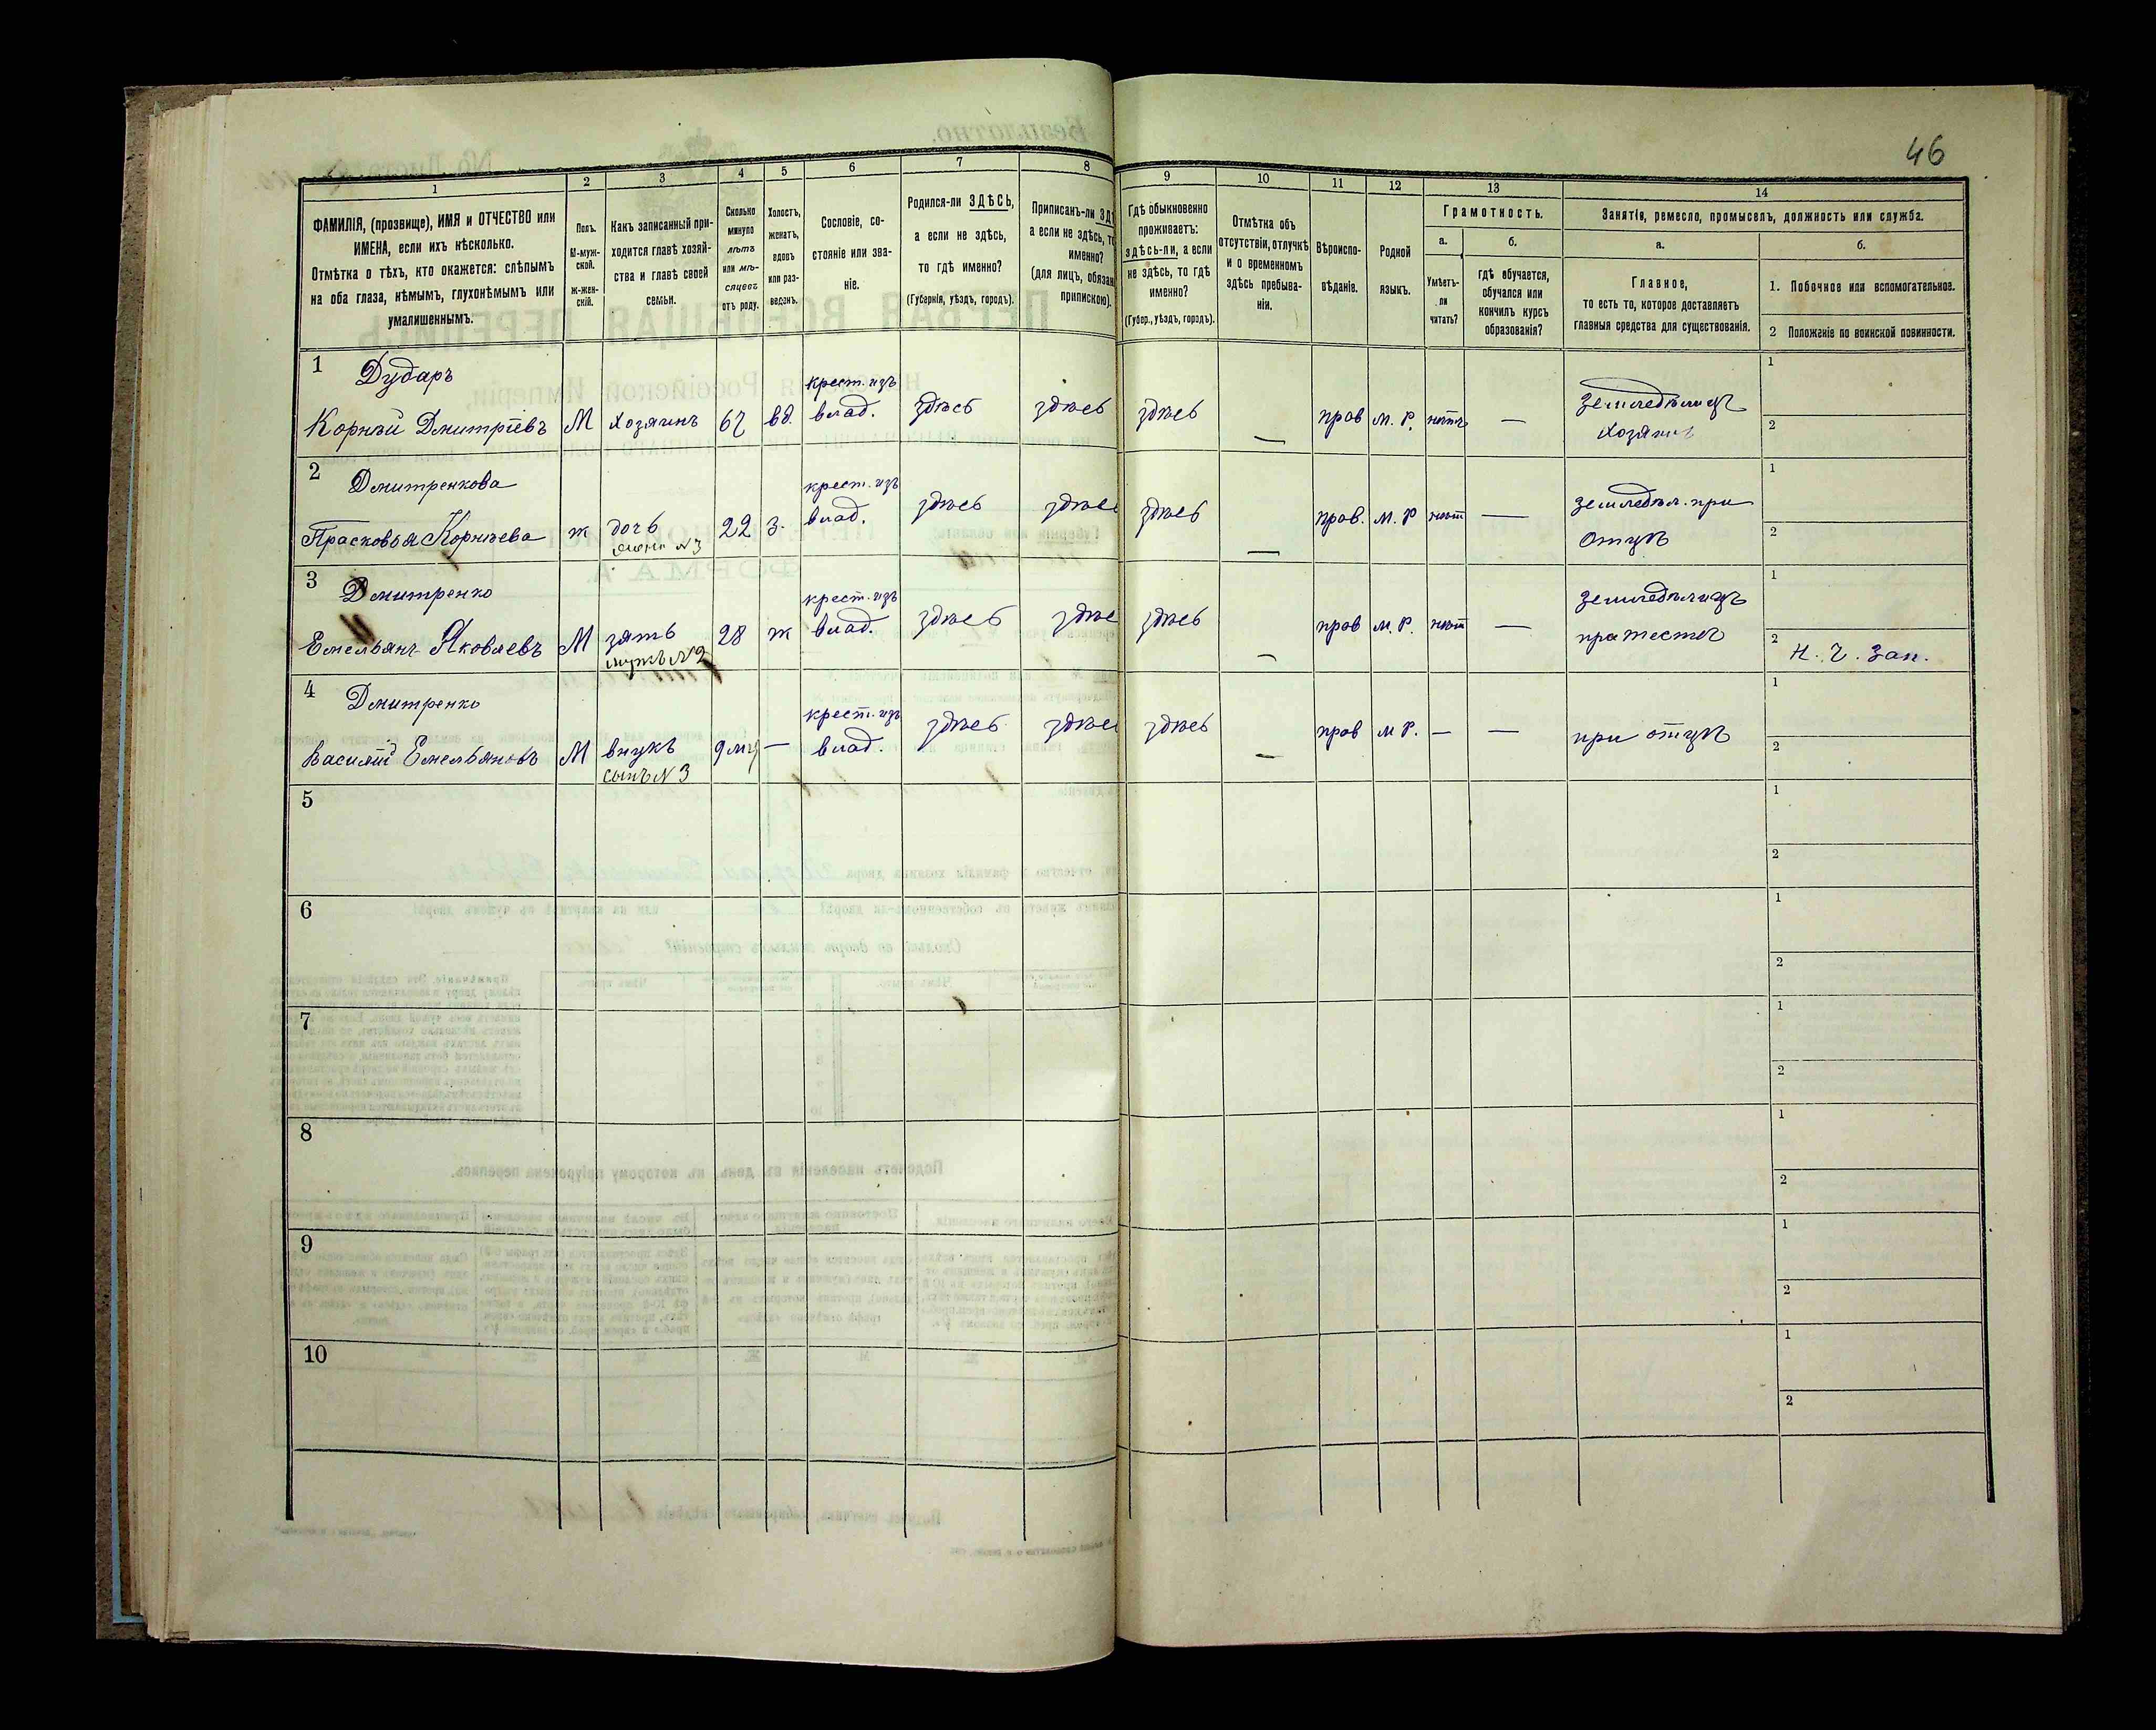 46
1
2
3
4
5
6
7
8
9
10
11
12
13
14
ФАМИЛІЯ, (прозвище), ИМЯ и ОТЧЕСТВО или
ИМЕНА, если ихъ нѣсколько.
Отмѣтка о тѣхъ, кто окажется: слѣпымъ
на оба глаза, нѣмымъ, глухонѣмымъ или
умалишеннымъ.
Полъ.
М-муж-
ской.
Ж-жен-
скій.
Какъ записанный при-
ходится главѣ хозяй-
ства и главѣ своей
семьи.
Сколько
минуло
лѣтъ
или мѣ-
сяцевъ
отъ роду.
Холостъ,
женатъ,
вдовъ
или раз-
веденъ.
Сословіе, со-
стояніе или зва-
ніе.
Родился-ли ЗДѢСЬ,
а если не здѣсь,
то гдѣ именно?
(Губернія, уѣздъ, городъ).
Приписанъ-ли
а если не здѣсь,
именно?
(для лицъ,
припискою).
Гдѣ обыкновенно
проживаетъ:
здѣсь-ли, а если
не здѣсь, то гдѣ
именно?
(Губер., уѣздъ, городъ).
Отмѣтка объ
отсутствіи, отлучкѣ
и о временномъ
здѣсь пребыва-
ніи.
Вѣроиспо-
вѣданіе.
Родной
языкъ.
Грамотность.
а.
Умѣетъ-
ли
читать?
б.
гдѣ обучается,
обучался или
кончилъ курсъ
образованія?
Занятія, ремесло, промыселъ, должность или служба.
а.
Главное,
то есть то, которое доставляетъ
главныя средства для существованія.
б.
1. Побочное или вспомогательное.
2 Положеніе по воинской повинности.
1 Дударъ
Корнѣй Дмитріевъ М хозяинъ 67 вд. крест. изъ влад. здѣсь здѣсь здѣсь — пров м. р. нѣтъ — земледѣлецъ
хозяинъ
1
2
2 Дмитренкова
Прасковья Корнѣева ж дочь 22 з. крест. изъ влад. здѣсь здѣсь — пров. м. р нѣт — земледѣл. при
жена №3 отцѣ
1
2
3 Дмитренко
Емельянъ Яковлевъ М зять 28 ж крест. изъ влад. здѣсь здѣсь — пров м. р. нѣт — земледѣлецъ
мужъ №2 при тестѣ
1
2 Н. Ч. Зап.
4 Дмитренко
Василій Емельяновъ М внукъ — крест. изъ влад. здѣсь здѣсь — пров м р. — — при отцѣ
сынъ №3
1
2
5
1
2
6
1
2
7
1
2
8
1
2
9
1
2
10
1
2